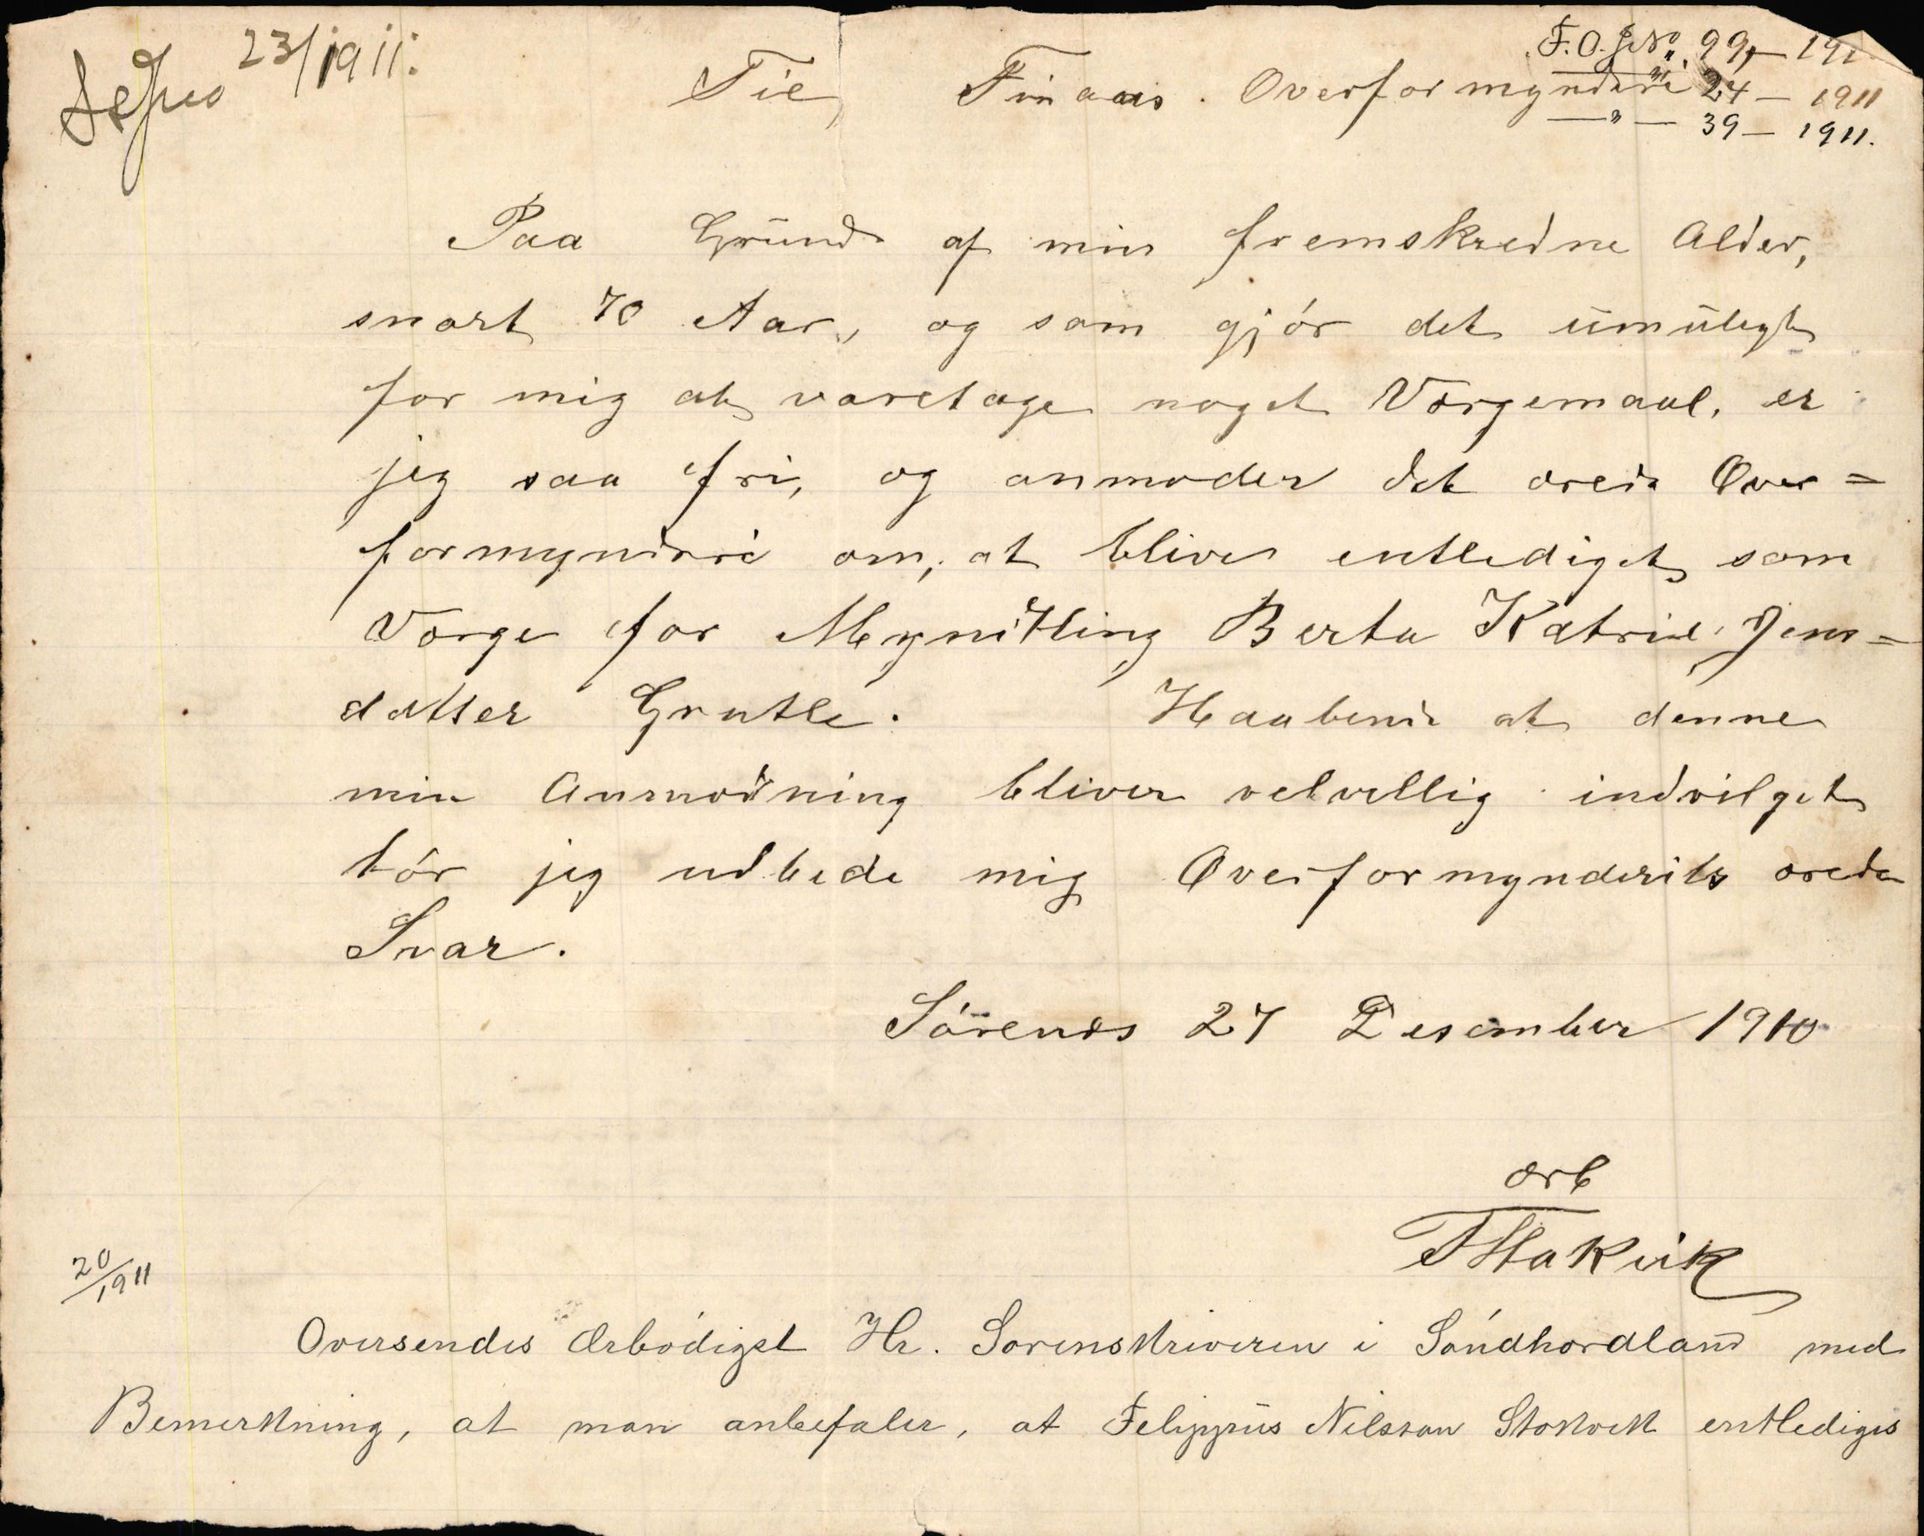 23/1911.
F.O. JNo 99 - 191
Til Finaas Overformynderi 24 - 1911
—"— 39 - 1911.
Paa Grund af min fremskredne Alder,
snart 70 Aar, og som gjör det umuligt
for mig at varetage noget Vergemaal, er
jeg saa fri, og anmoder det ærede Over=
formynderi om, at blive entlediget som
Værge for Myndtling Berta Katrine Jens=
datter Grutle. Haabende at denne
min Anmodning bliver velvillig indvilget
tör jeg udbede mig Overformynderits ærede
Svar.
Sörenes 27 Desember 1910
ærb
F Stokvik
20/1911
Oversendes Ærbödigst Hr. Sorenskriveren i Söndhordland med
Bemerkning, at man anbefaler, at Felippus Nilsson Stokvik entlediges